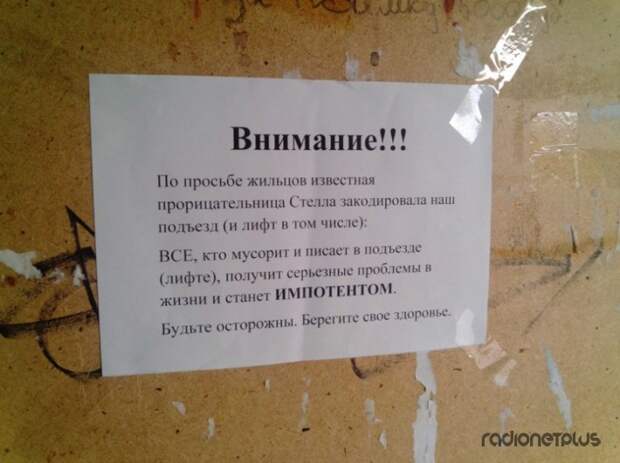 Внимание!!!
По просьбе жильцов известная
прорицательница Стелла закодировала наш
подъезд (и лифт в том числе):
ВСЕ, кто мусорит и писает в подъезде
(лифте), получит серьезные проблемы в
жизни и станет ИМПОТЕНТОМ.
Будьте осторожны. Берегите свое здоровье.
radionetplus